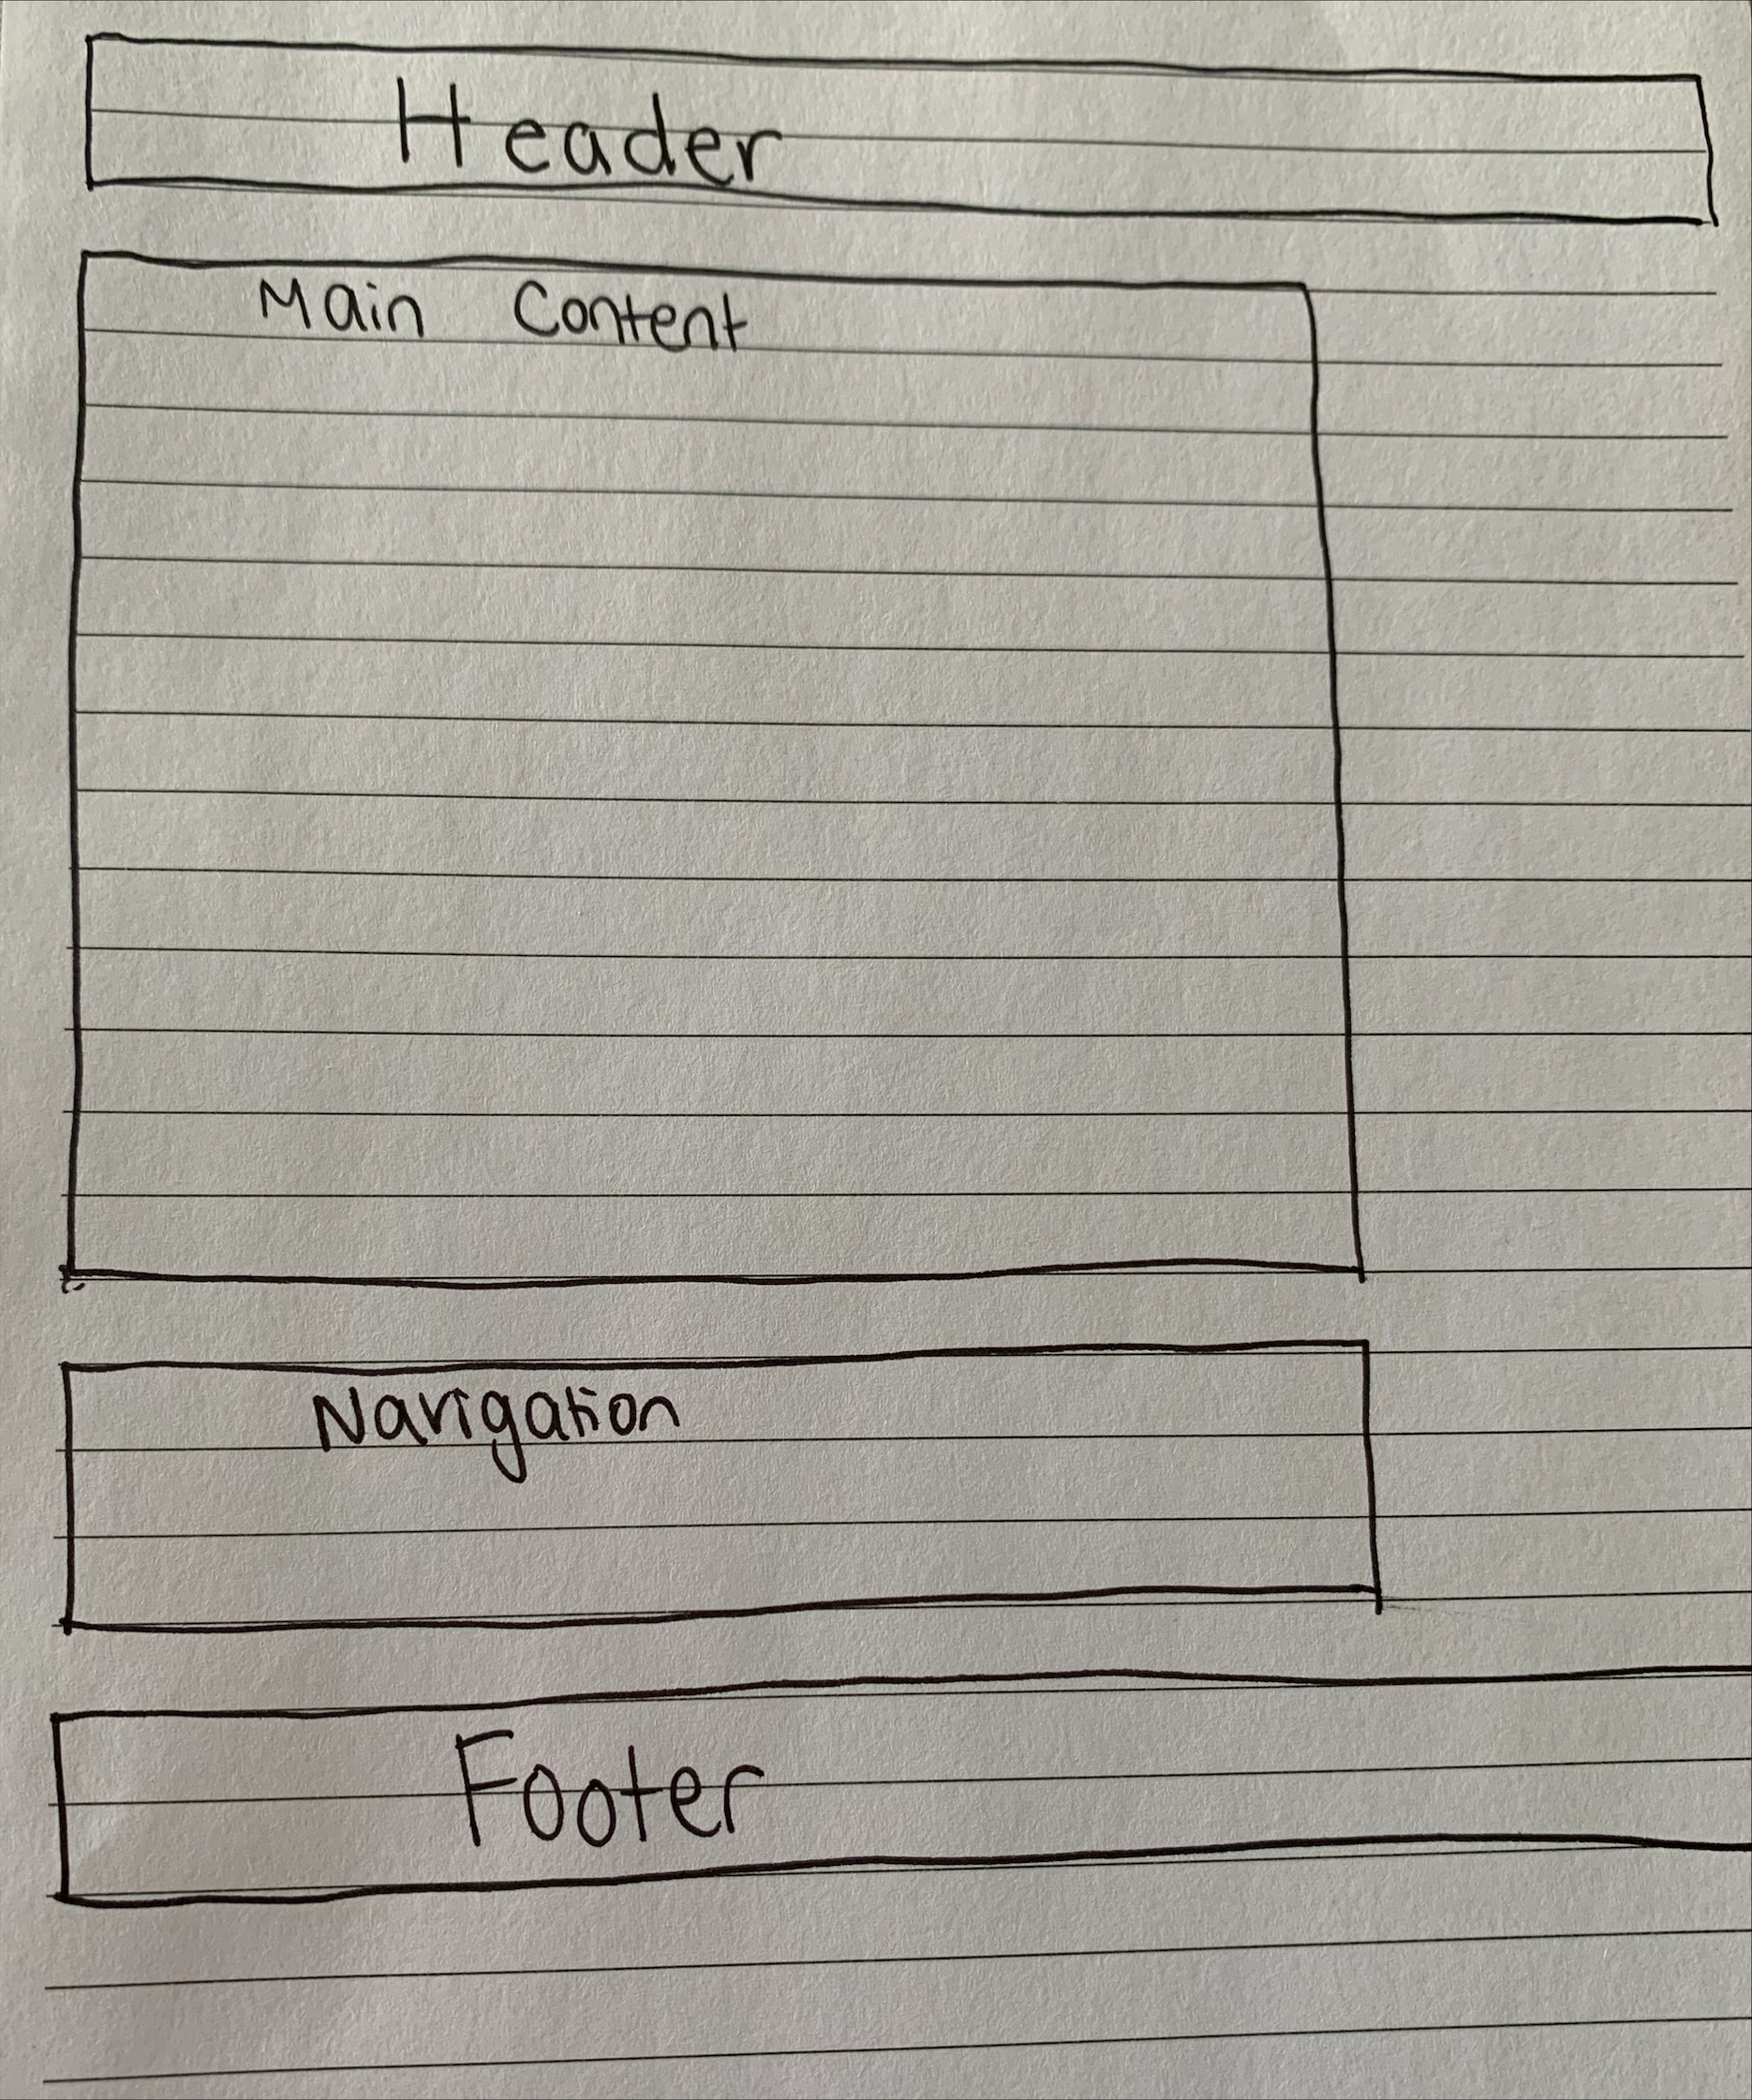 Header
Main Content
Navigation
Footer